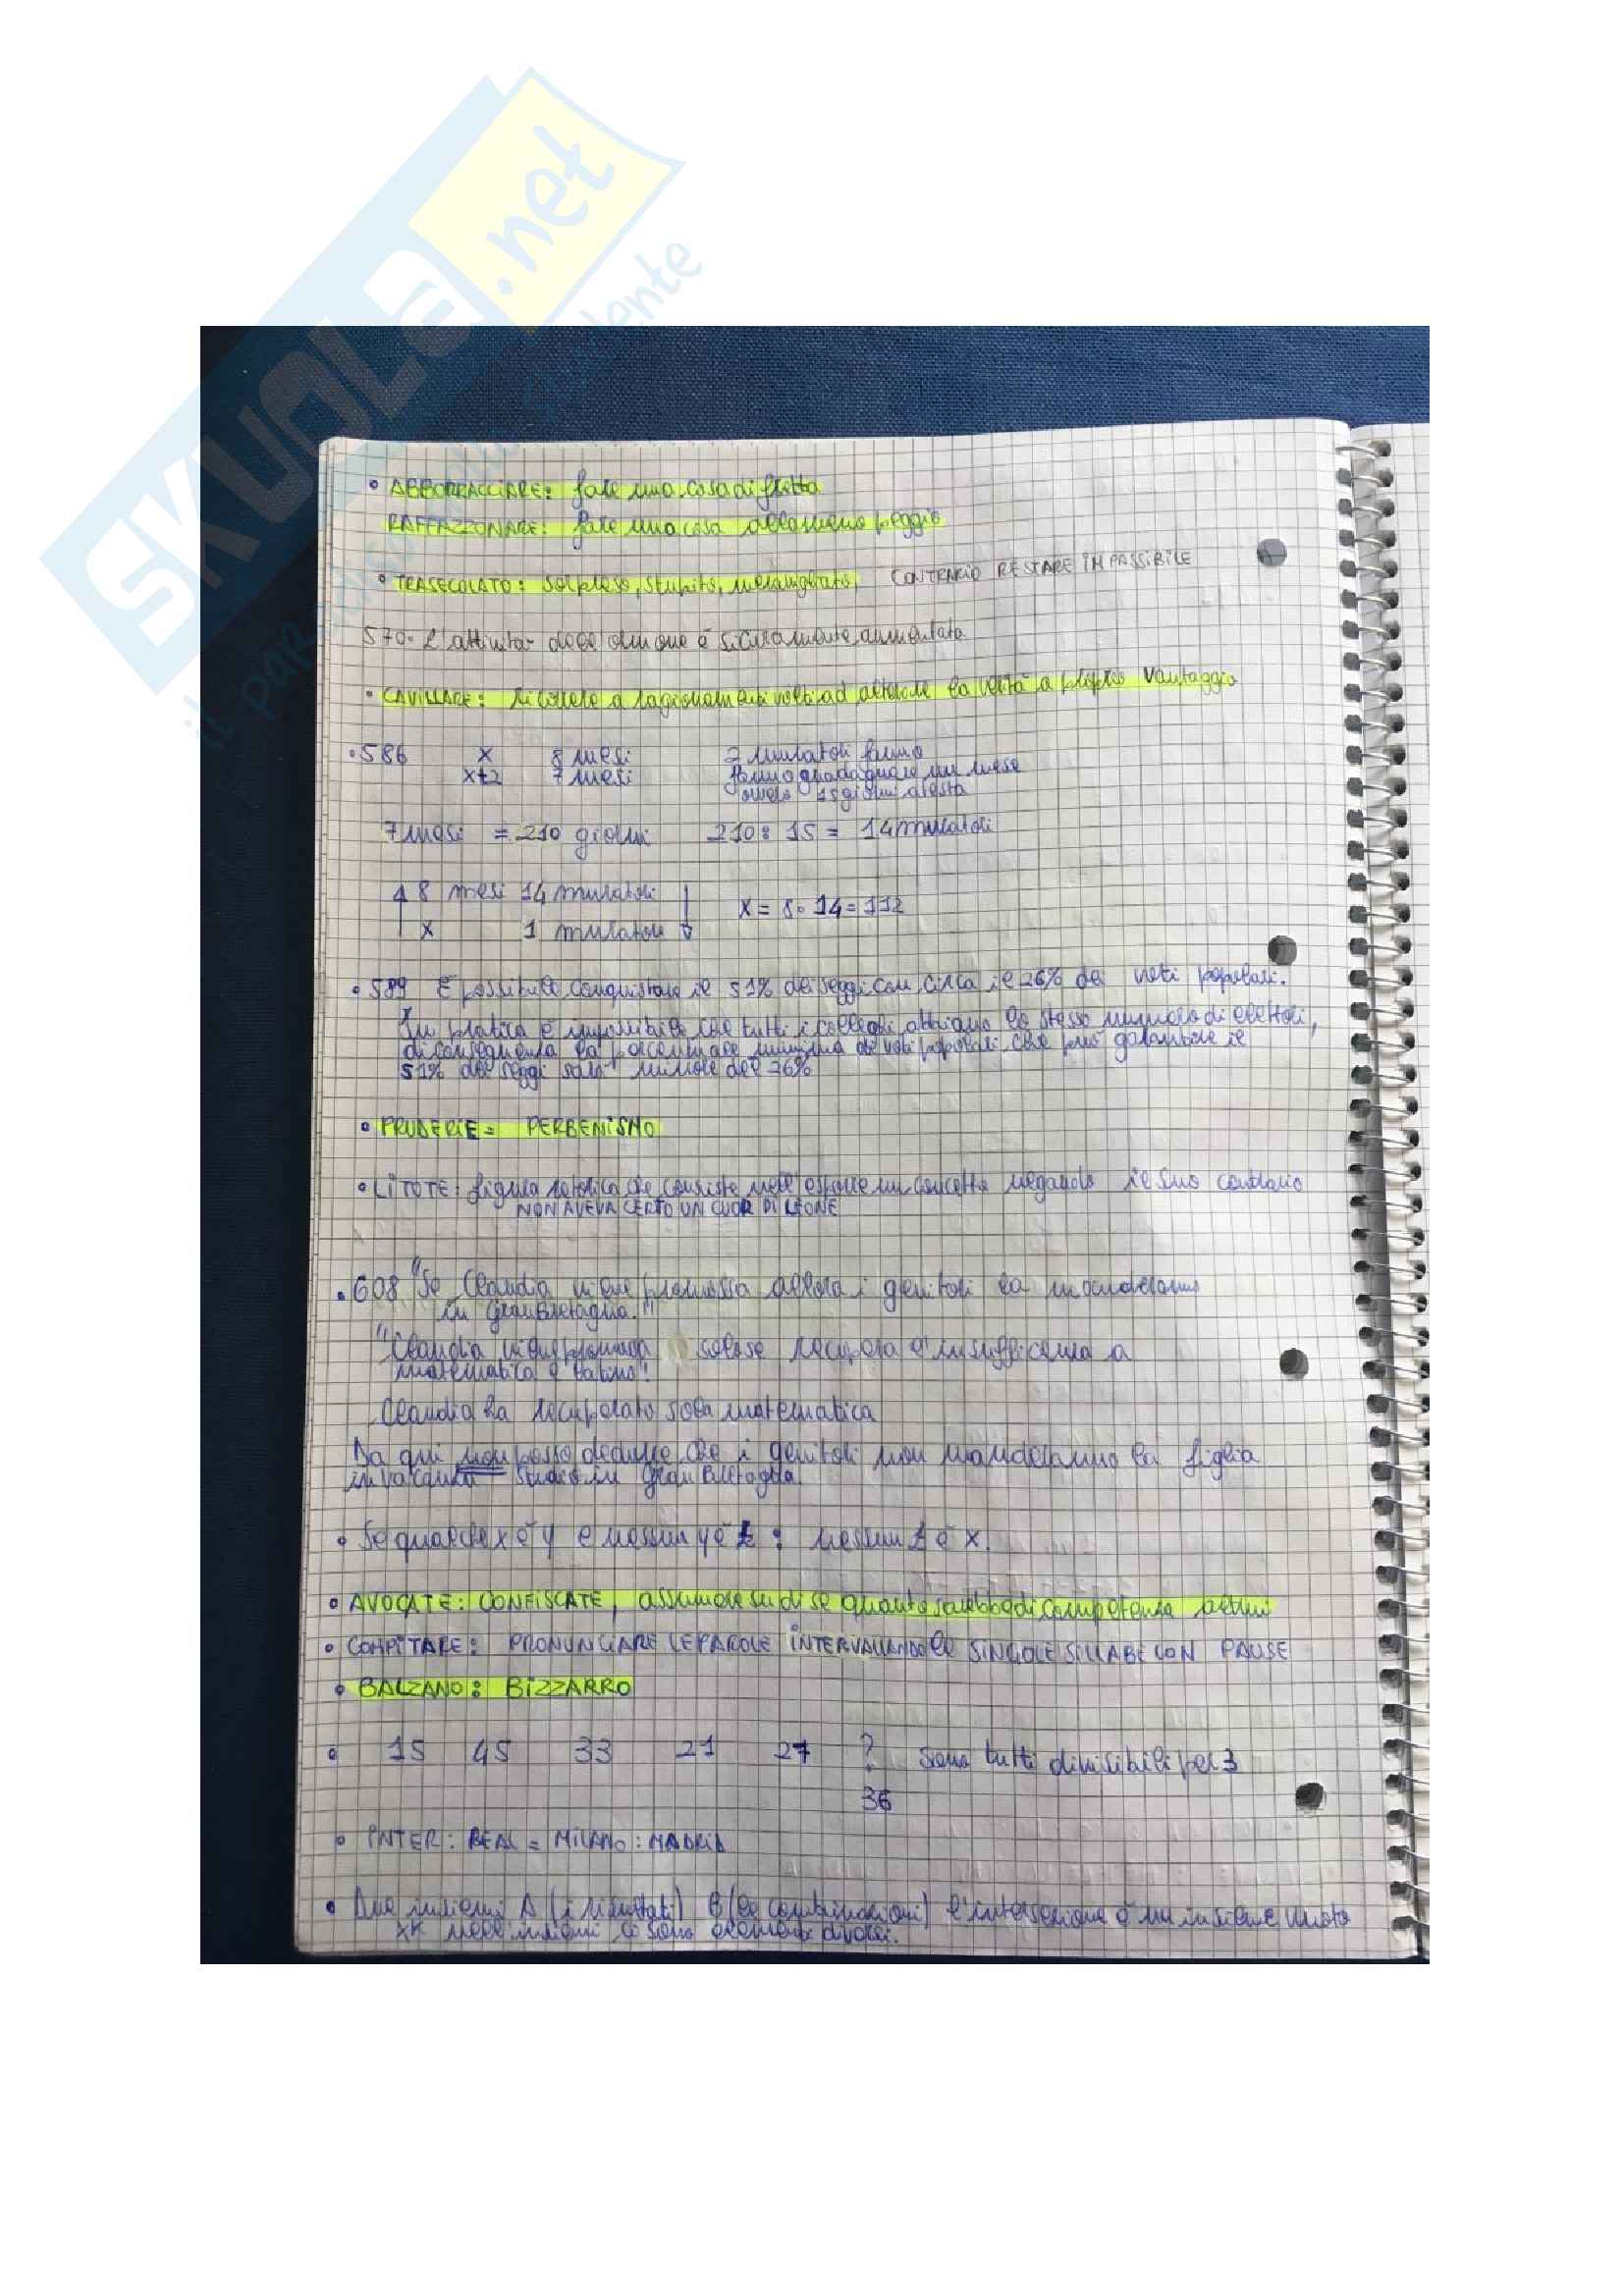 SKUOLA.net
• ABBORRACCIARE: fare una cosa di fretta
RAFFAZZONARE: fare una cosa alla meno peggio
• TRASECOLATO: sorpreso, stupito, meravigliato, CONTRARIO RESTARE IMPASSIBILE
570. L'attività delle dunque è sicuramente aumentata
• CAVILLARE: ricorrere a ragionamenti volti ad alterare la verità a proprio vantaggio
• 586 x 8 mesi 2 muratori fanno
x+2 7 mesi fanno guadagnare un mese
ovvero 15 giorni a testa
7 mesi = 210 giorni 210 : 15 = 14 muratori
8 mesi 14 muratori x = 8 · 14 = 112
x 1 muratore
• 589 È possibile conquistare il 51% dei seggi con circa il 26% dei voti popolari.
In pratica è impossibile che tutti i collegi abbiano lo stesso numero di elettori,
di conseguenza la percentuale minima de voti popolari che può garantire il
51% dei seggi sarà minore del 26%
• PRUDERIE = PERBENISMO
• LITOTE: figura retorica che consiste nell'esporre un concetto negando il suo contrario
NON AVEVA CERTO UN CUOR DI LEONE
• 608 "Se Claudia viene promossa allora i genitori la manderanno
in Gran Bretagna."
"Claudia viene promossa solo se recupera l'insufficienza a
matematica e latino"
Claudia ha recuperato solo matematica
Da qui non posso dedurre che i genitori non manderanno la figlia
in vacanza studio in Gran Bretagna.
• Se qualche x è y e nessun y è z : nessun z è x.
• AVOCATE: CONFISCATE, assumere su di se quanto sarebbe di competenza altrui
• COMPITARE: PRONUNCIARE LE PAROLE INTERVALLANDO le SINGOLE SILLABE CON PAUSE
• BALZANO: BIZZARRO
• 15 45 33 21 27 ? sono tutti divisibili per 3
36
• INTER: REAL = MILANO : MADRID
• Due insiemi A (i risultati) B (le combinazioni) l'intersezione è un insieme vuoto
xk negli insiemi ci sono elementi diversi.